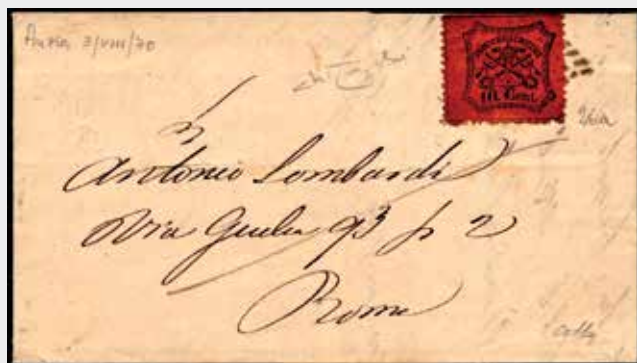 3/VIII/70
10 Cent.
26a
Antonio Lombardi
Via Giulia 93 p 2
Roma